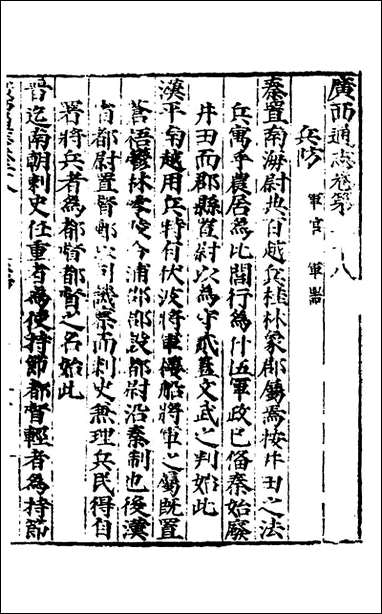 廣西通志卷第 十八
兵防 軍官 軍器
秦置南海尉典百越兵桂林象郡屬焉按井田之法
兵寓乎農居為比閭行為什伍軍政已備秦始廢
井田而郡縣置尉以為守武文武之判始此
漢平南越用兵特有伏波將軍樓船將軍之屬既置
蒼梧鬱林 合浦郡郡設都尉沿秦制也後漢
省都尉置督郵 司譏察而刺史兼理兵民得自
署將兵者為都督都督之名始此
晉迄南朝刺史任重者為使持節都督輕者為持節